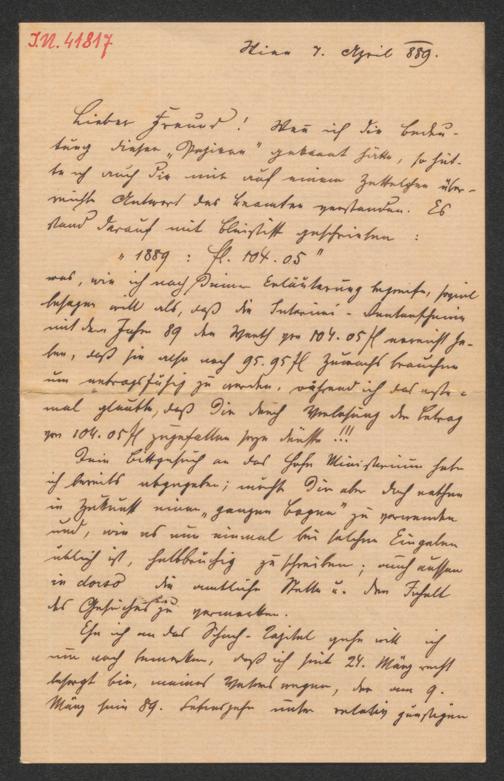 I.N. 41817
Wien 7. April 889.
Lieber Freund! Wenn ich die Bedeu-
tung dieser „Papiere" gekannt hätte, so hät-
te ich auch die mir auf einem Zettelchen über-
reichte Antwort des Beamten verstanden. Es
stand darauf mit Bleistift geschrieben:
„1889: fl. 104.05"
was, wie ich nach Deiner Erläuterung begreife, soviel
besagen will als, daß die Interims-Rentenscheine
mit dem Jahre 89 den Werth von 104.05 fl erreicht ha-
ben, daß sie also noch 95.95 fl Zuwachs brauchen
um ertragsfähig zu werden, während ich das erste-
mal glaubte, daß Dir durch Verlosung der Betrag
von 104.05 fl zugefallen sein dürfte!!!
Dein Bittgesuch an das hohe Ministerium habe
ich bereits abgegeben; möchte Dir aber doch rathen
in Zukunft einen „ganzen Bogen" zu verwenden
und, wie es nun einmal bei solchen Eingaben
üblich ist, halbbrüchig zu schreiben; auch aussen
in dorso die amtliche Stelle u. den Inhalt
des Gesuches zu vermerken.
Ehe ich an das Schach-Kapitel gehe will ich
nur noch bemerken, daß ich seit 24. März recht
besorgt bin, meines Vaters wegen, der am 9.
März sein 89. Lebensjahr unter relativ günstigen